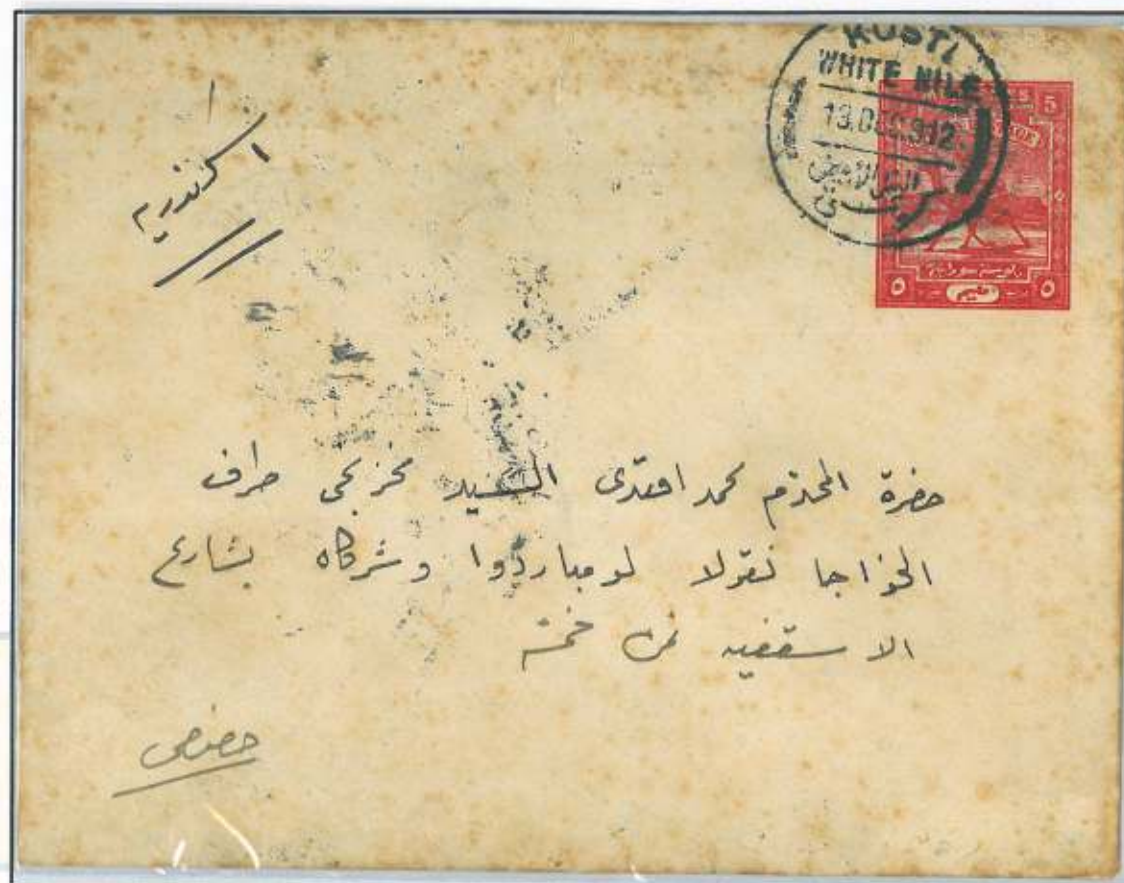 KOSTI
WHITE NILE
13.DEC.912
النيل الأبيض
كوستي
5
بوستة سودانية
٥ مليم ٥
اسكندرية
حضرة المحترم محمد افندى السيد مخزنجى طرف
الخواجا نقولا لومباردوا وشركاه بشارع
الاسقفيه خمسة
خصوصى